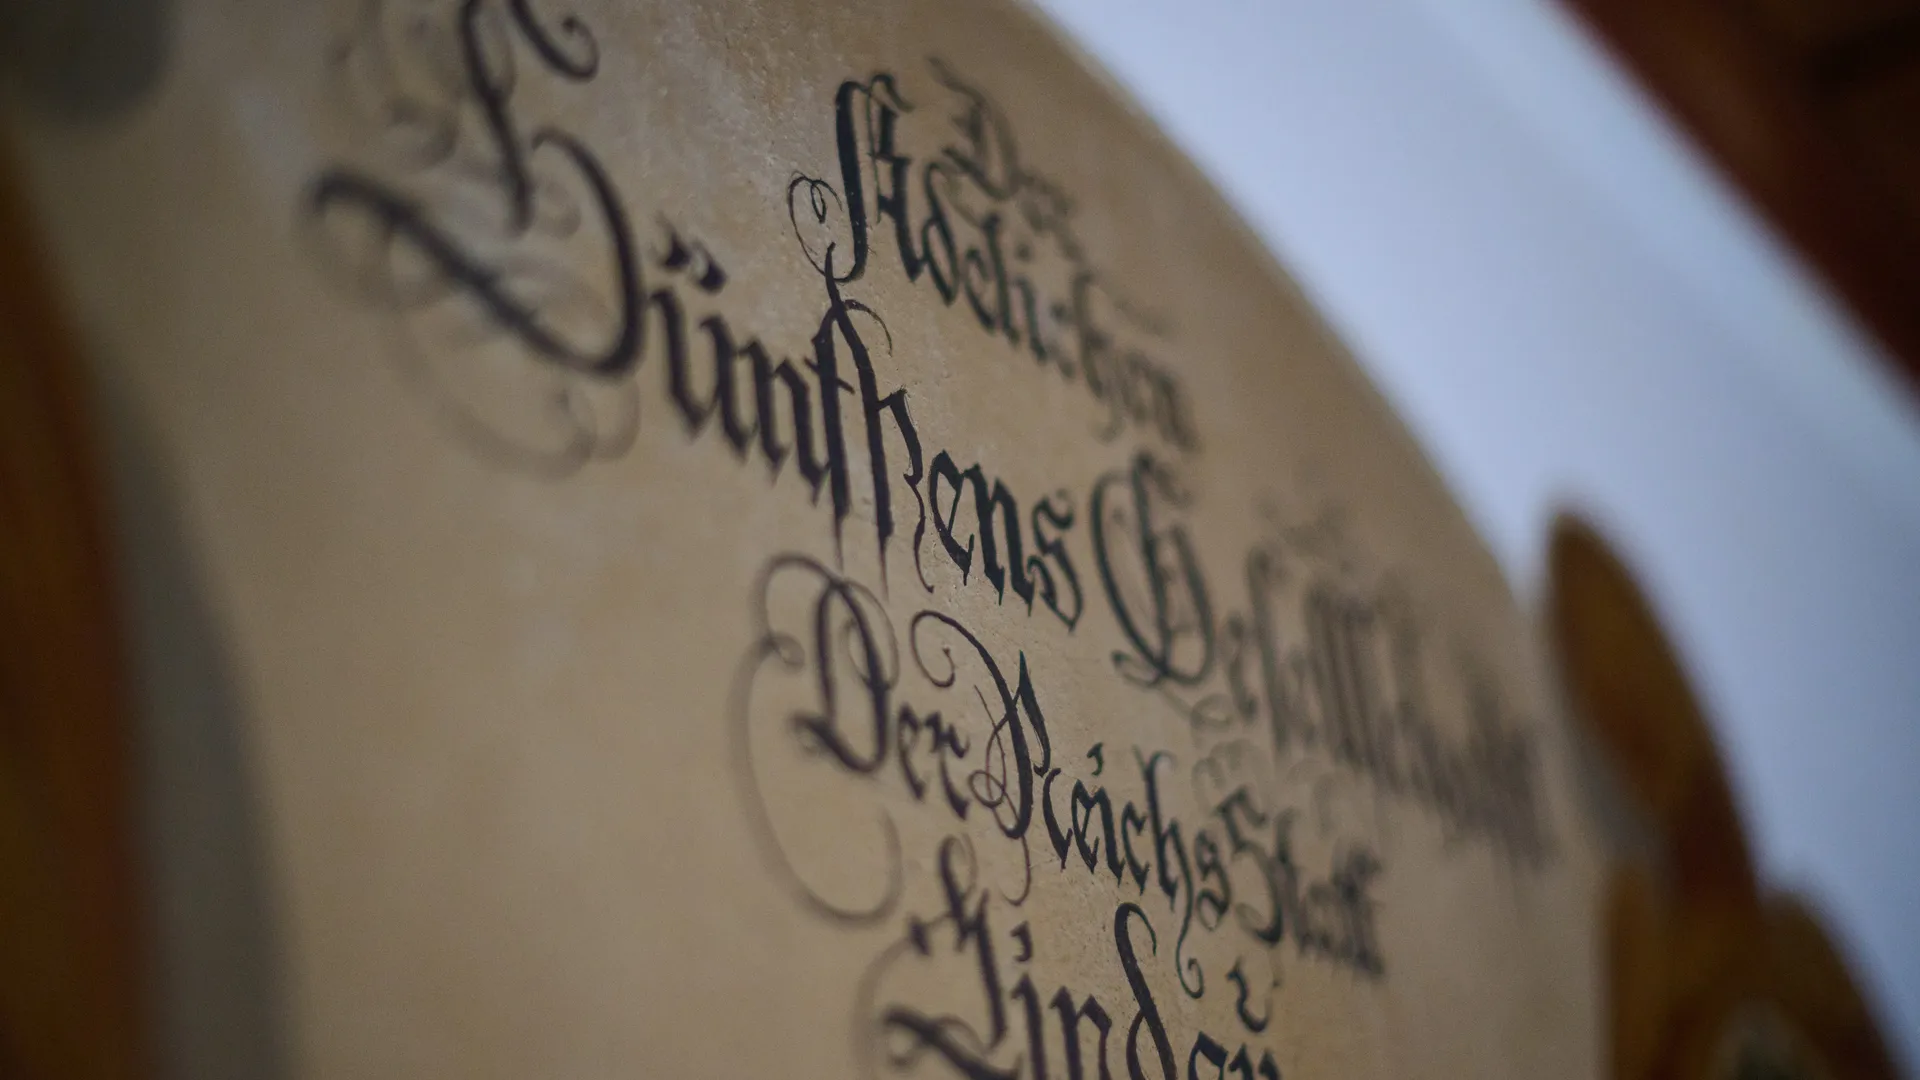 Der
Adelichen
Sünfftzens Gesellschafft
Der Reichs Statt
Lindau